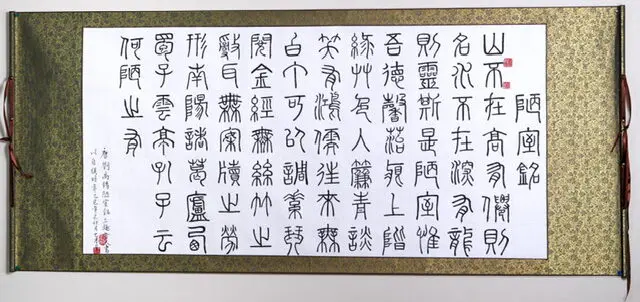 陋室銘
山不在高有僊則
名水不在深有龍
則靈斯是陋室惟
吾德馨苔痕上階
綠艸色入簾青談
笑有鴻儒往來無
白丁可以調素琴
閱金經無絲竹之
亂耳無案牘之勞
形南陽諸葛廬西
蜀子雲亭孔子云
何陋之有
唐劉禹錫陋室銘